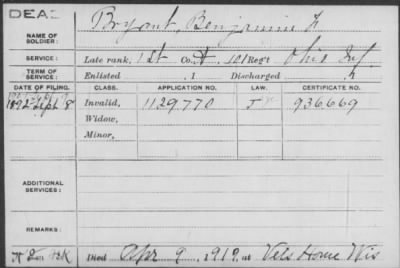 DEAD
Bryant, Benjamin F
NAME OF SOLDIER:
SERVICE: Late rank, 1 Lt Co. A, 101 Reg't Ohio Inf.
TERM OF SERVICE: Enlisted , 1 Discharged , 1
DATE OF FILING. CLASS. APPLICATION NO. LAW. CERTIFICATE NO.
1892 Sept 8 Invalid, 1129.770 936669
Widow,
Minor,
ADDITIONAL SERVICES:
REMARKS:
Died Apr 9, 1919, at Vels Home Wis